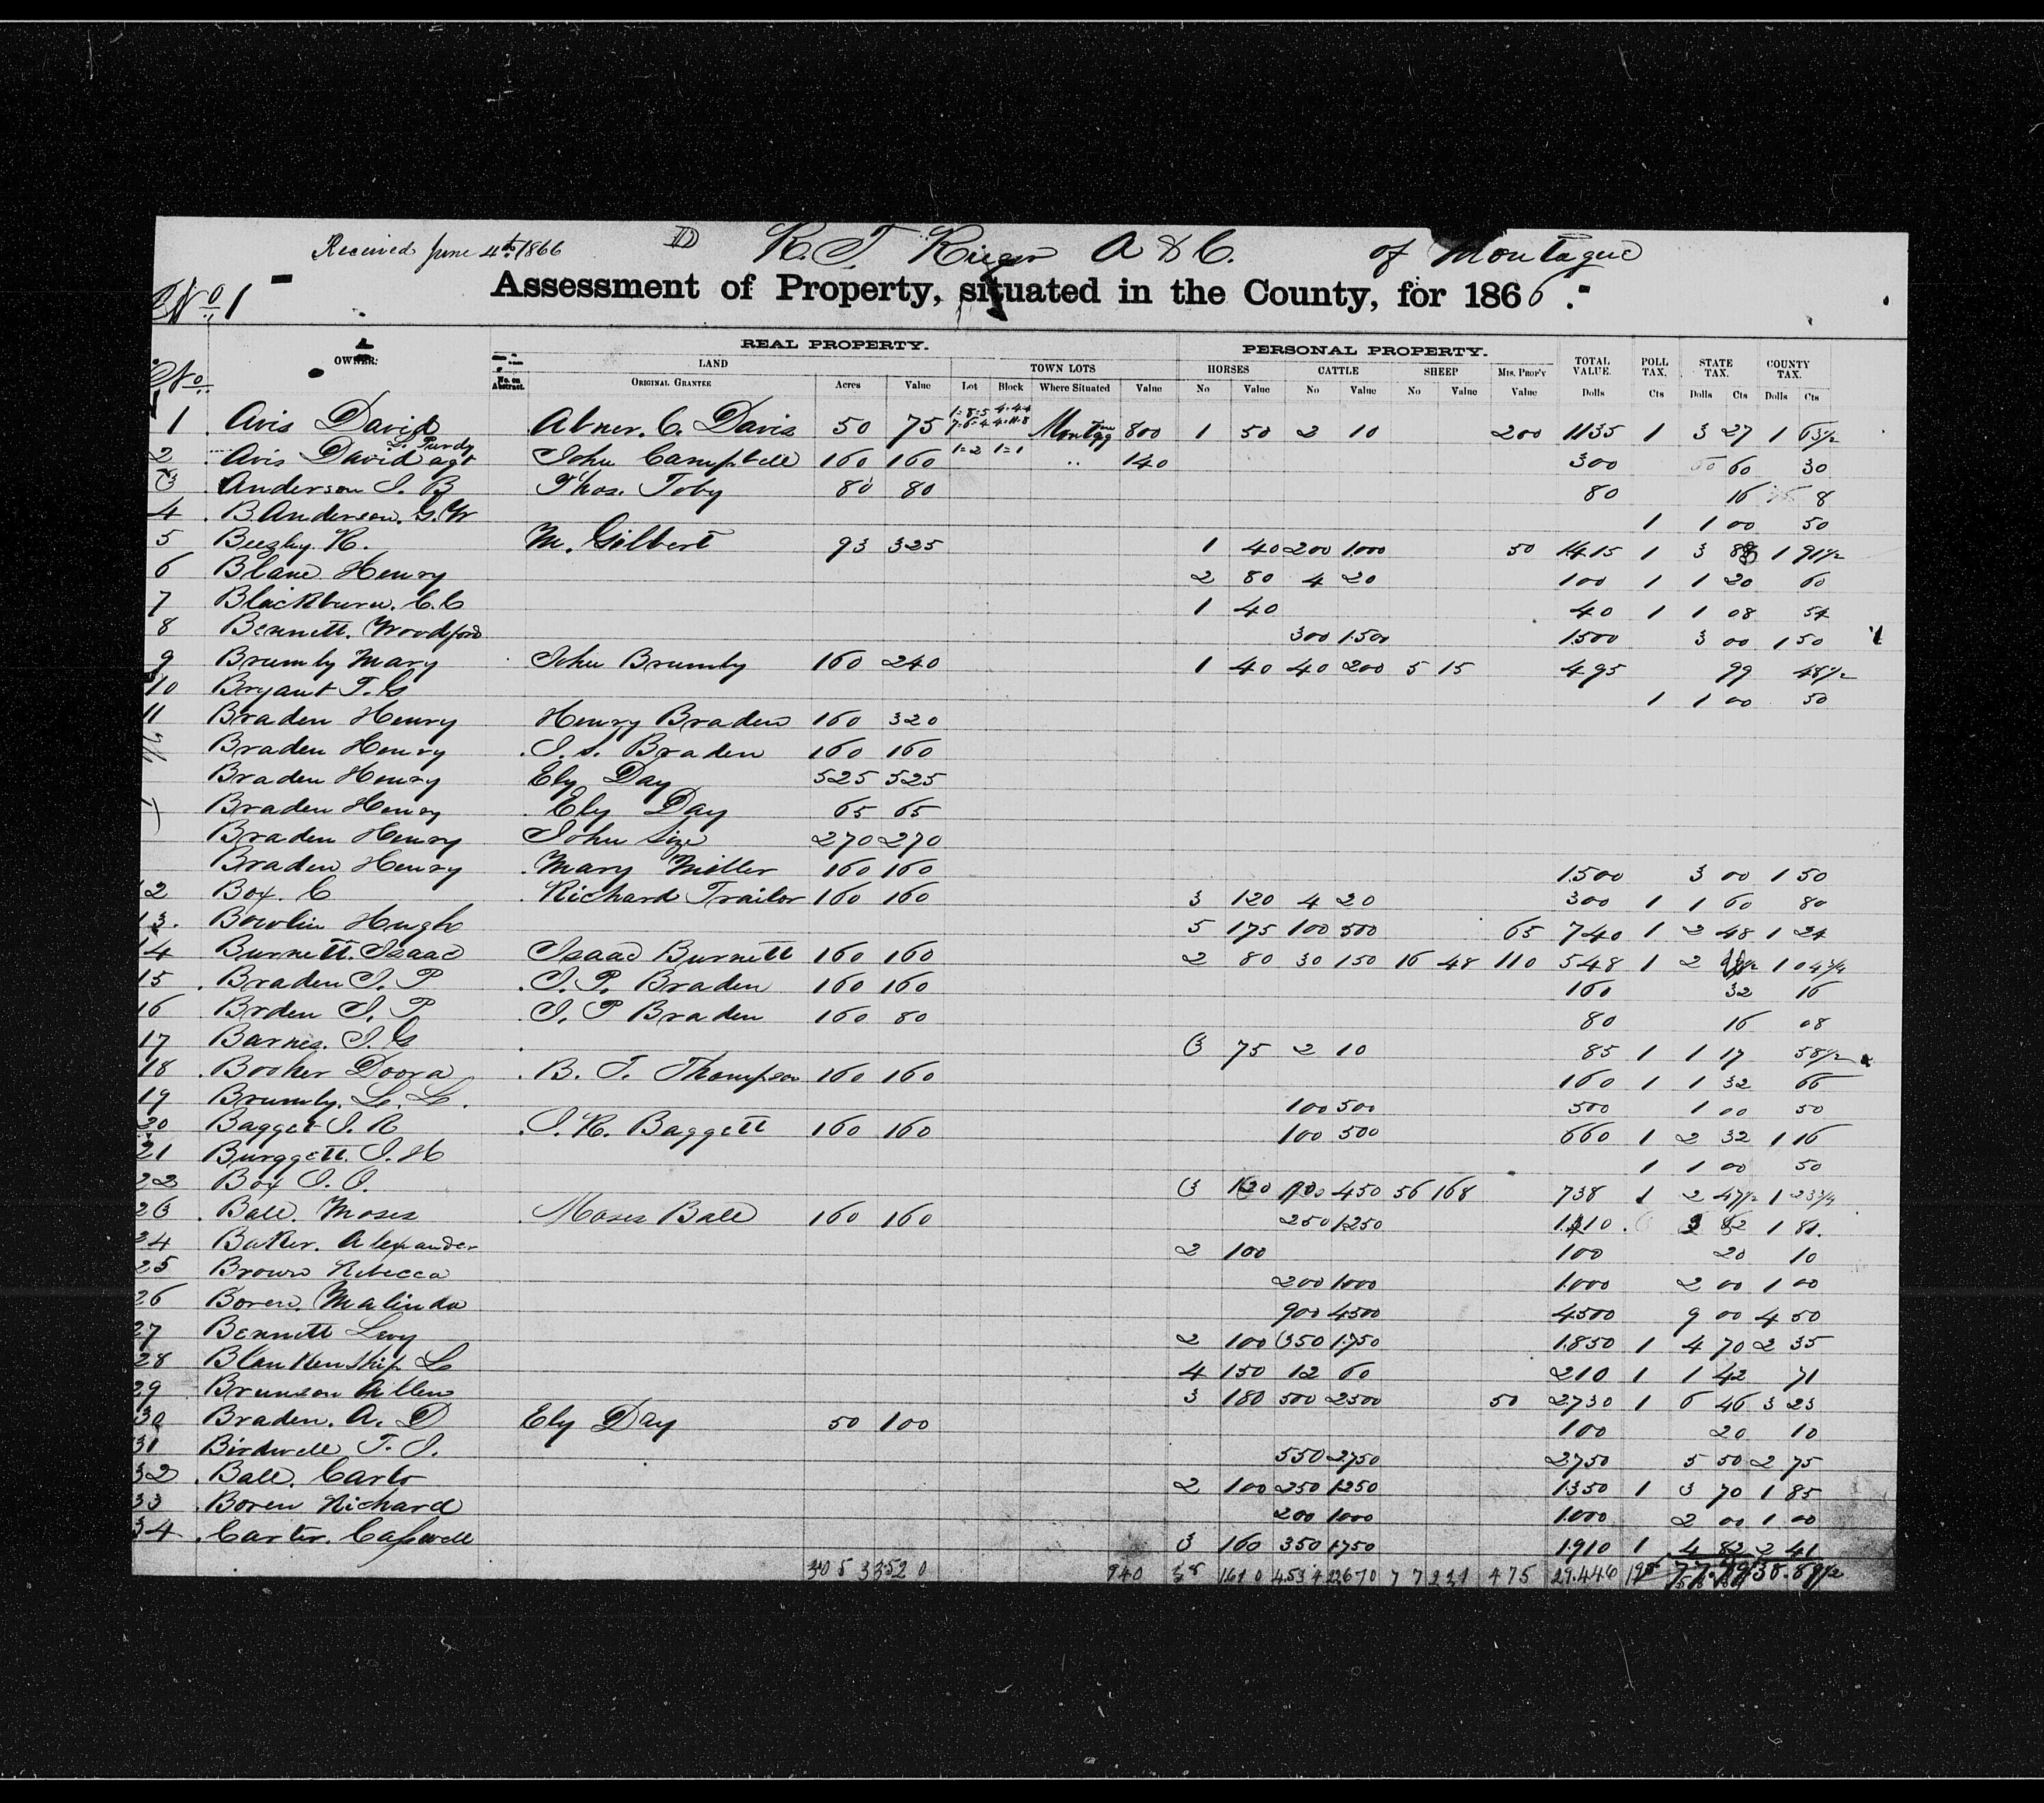 Received June 4th 1866 D K. T. A & C. of Montague
No 1 Assessment of Property, situated in the County, for 1866.
REAL PROPERTY. PERSONAL PROPERTY.
No. OWNER. No. on Abstract. LAND TOWN LOTS HORSES CATTLE SHEEP Mis. Prop'y TOTAL VALUE. POLL TAX. STATE TAX. COUNTY TAX.
Original Grantee Acres Value Lot Block Where Situated Value No Value No Value No Value Value Dolls Cts Dolls Cts Dolls Cts
1 Avis David Abner. C. Davis 50 75 800 1 50 2 10 200 1135 1 3 27 1 63½
2 Avis David agt L. Purdy John Campbell 160 160 1=2 1=1 " 140 300 60 30
3 Anderson J. B Thos. Toby 80 80 80 16 8
4 B Anderson. G. W 1 1 00 50
5 Beezley. H. M. Gilbert 93 325 1 40 200 1000 50 1415 1 3 1 91½
6 Blane Henry 2 80 4 20 100 1 1 20 60
7 Blackburn. C. C 1 40 40 1 1 08 54
8 Bennett. Woodford 300 1500 1500 3 00 1 50
9 Brumly Mary John Brumly 160 240 1 40 40 200 5 15 495 99 48½
10 Bryant T. G 1 1 00 50
11 Braden Henry Henry Braden 160 320
Braden Henry J. S. Braden 160 160
Braden Henry Ely Day 525 525
Braden Henry Ely Day 65 65
Braden Henry John Size 270 270
Braden Henry Mary Miller 160 160 1500 3 00 1 50
12 Box. C Richard Trailor 160 160 3 120 4 20 300 1 1 60 80
13. Bowlin Hugh 5 175 100 500 65 740 1 2 48 1 24
14 Burnett. Isaac Isaac Burnett 160 160 2 80 30 150 16 48 110 548 1 2 1 04¾
15 Braden J. P J. P. Braden 160 160 160 32 16
16 Brden J. P J. P Braden 160 80 80 16 08
17 Barnes. J. G 3 75 2 10 85 1 1 17 58½
18 Booher Doora B. T. Thompson 160 160 160 1 1 32 66
19 Brumly. L. L. 100 500 500 1 00 50
20 Bagget J. R J. H. Baggett 160 160 100 500 660 1 2 32 1 16
21 Burggett. J. H 1 1 00 50
22 Box J. J. 3 120 450 56 168 738 1 2 47½ 1 23¾
23 Ball. Moses Moses Ball 160 160 250 1250 3 82 1 81.
24 Baker. Alexander 2 100 100 20 10
25 Brown Rebecca 200 1000 1000 2 00 1 00
26 Boren. Malinda 900 4500 4500 9 00 4 50
27 Bennett Levy 2 100 350 1750 1850 1 4 70 2 35
28 Blankenship L 4 150 12 60 210 1 1 42 71
29 Brunson Allen 3 180 500 2500 50 2730 1 6 46 3 23
30 Braden. A. D Ely Day 50 100 100 20 10
31 Birdwell T. J. 550 2750 2750 5 50 2 75
32 Ball. Carlo 2 100 250 1250 1350 1 3 70 1 85
33 Boren Richard 200 1000 1000 2 00 1 00
34 Carter. Caswell 3 160 350 1750 1910 1 4 82 2 41
940 1610 77 231 475 29.446